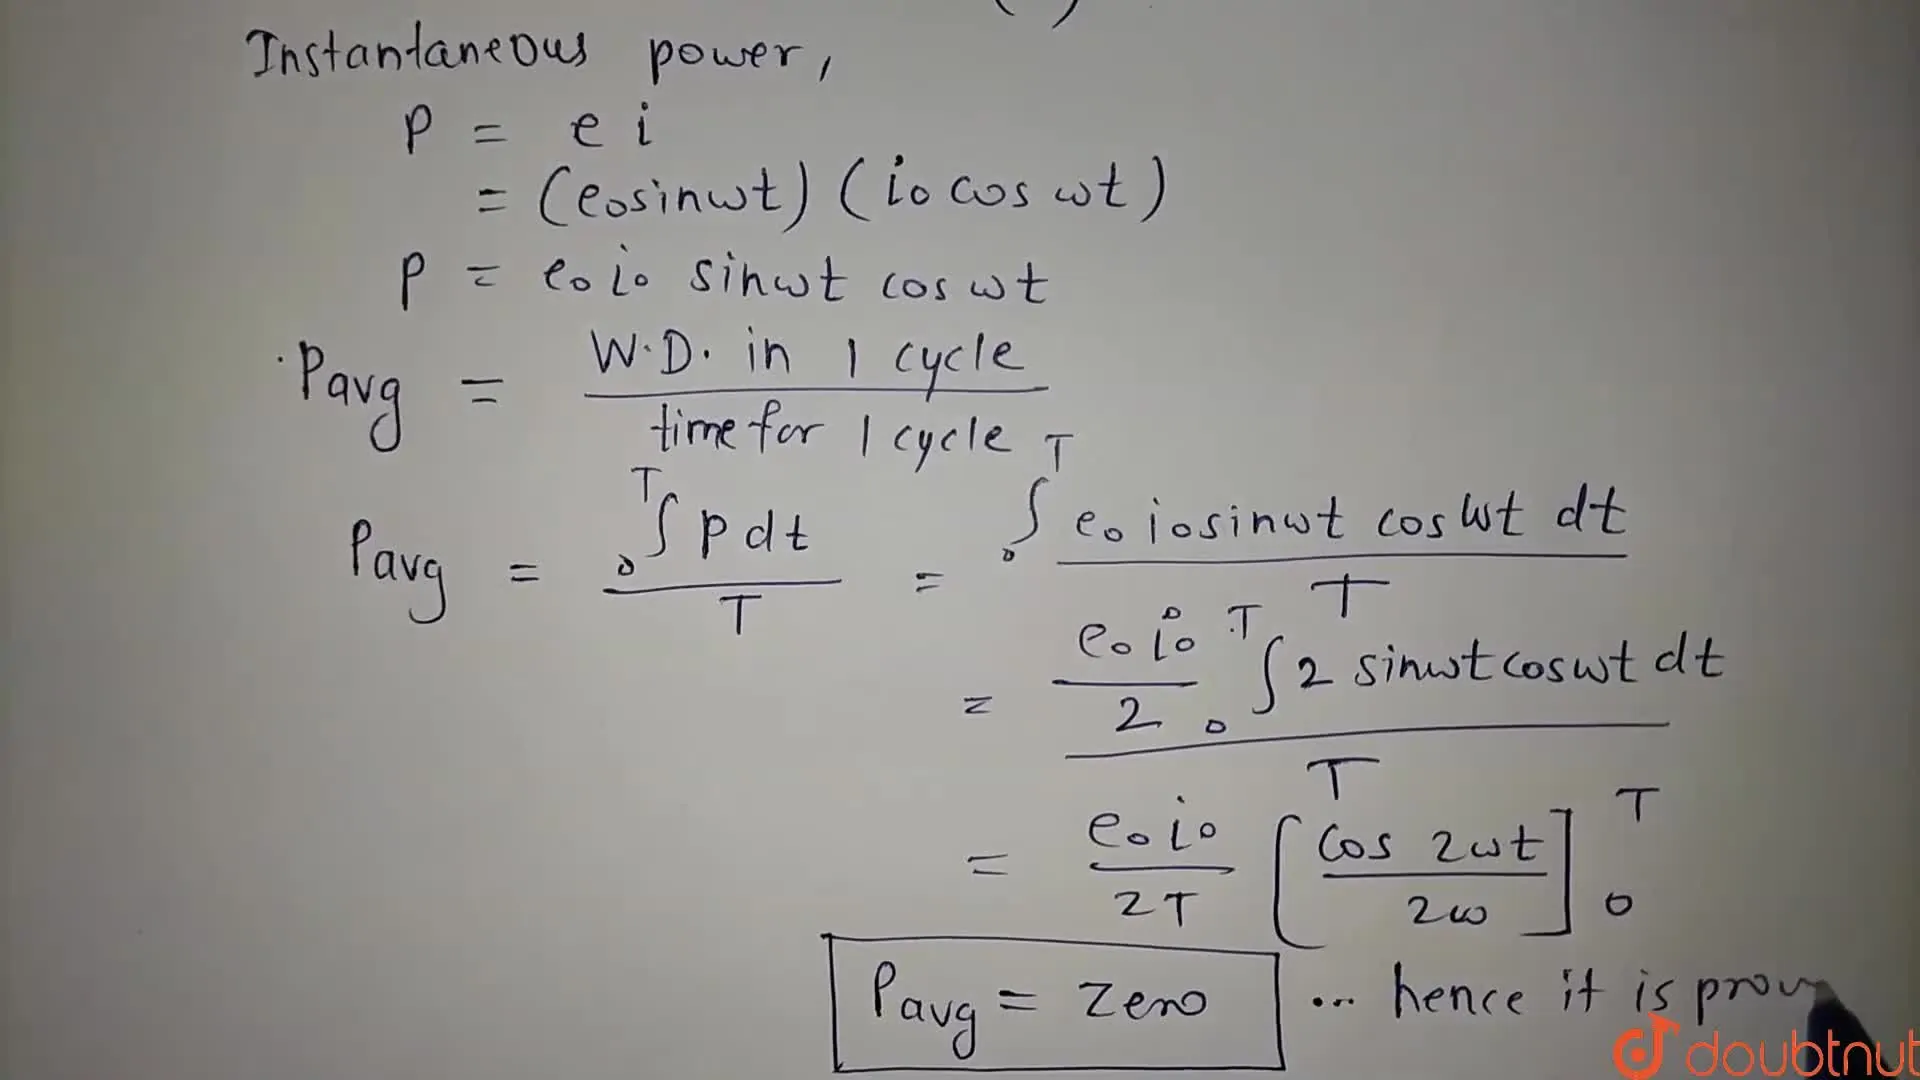 Instantaneous power,
P = e i
= (e₀sinωt) (i₀ cos ωt)
P = e₀ i₀ sinωt cos ωt
Pavg = W.D. in 1 cycle / time for 1 cycle
Pavg = ₀∫ᵀ p dt / T = ₀∫ᵀ e₀ i₀ sinωt cos ωt dt / T
= e₀ i₀ / 2 ₀∫ᵀ 2 sinωt cosωt dt / T
= e₀ i₀ / 2T [cos 2ωt / 2ω]₀ᵀ
Pavg = zero ... hence it is prov
doubtnut